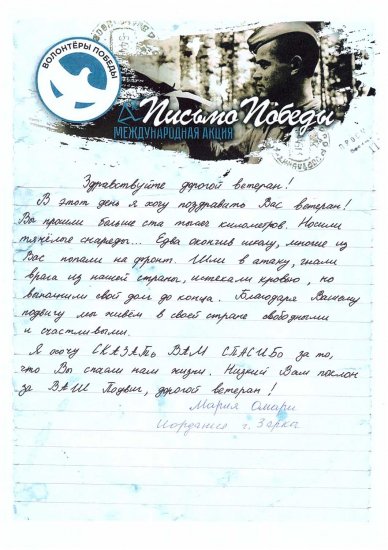 ВОЛОНТЁРЫ ПОБЕДЫ
Письмо Победы
МЕЖДУНАРОДНАЯ АКЦИЯ
Здравствуйте дорогой ветеран!
В этот день я хочу поздравать Вас ветеран!
Вы прошли больше ста тысяч километров. Носили
тяжёлые снаряды... Едва окончив школу, многие из
Вас попали на фронт. Шли в атаку, гнали
врага из нашей страны, истекали кровью, но
выполнили свой долг до конца. Благодаря Вашему
подвигу мы живём в своей стране свободными
и счастливыми.
Я хочу СКАЗАТЬ ВАМ СПАСИБО за то,
что Вы спасли нам жизни. Низкий Вам поклон
за ВАШ Подвиг, дорогой ветеран!
Мария Омари
Иордания г. Зарка